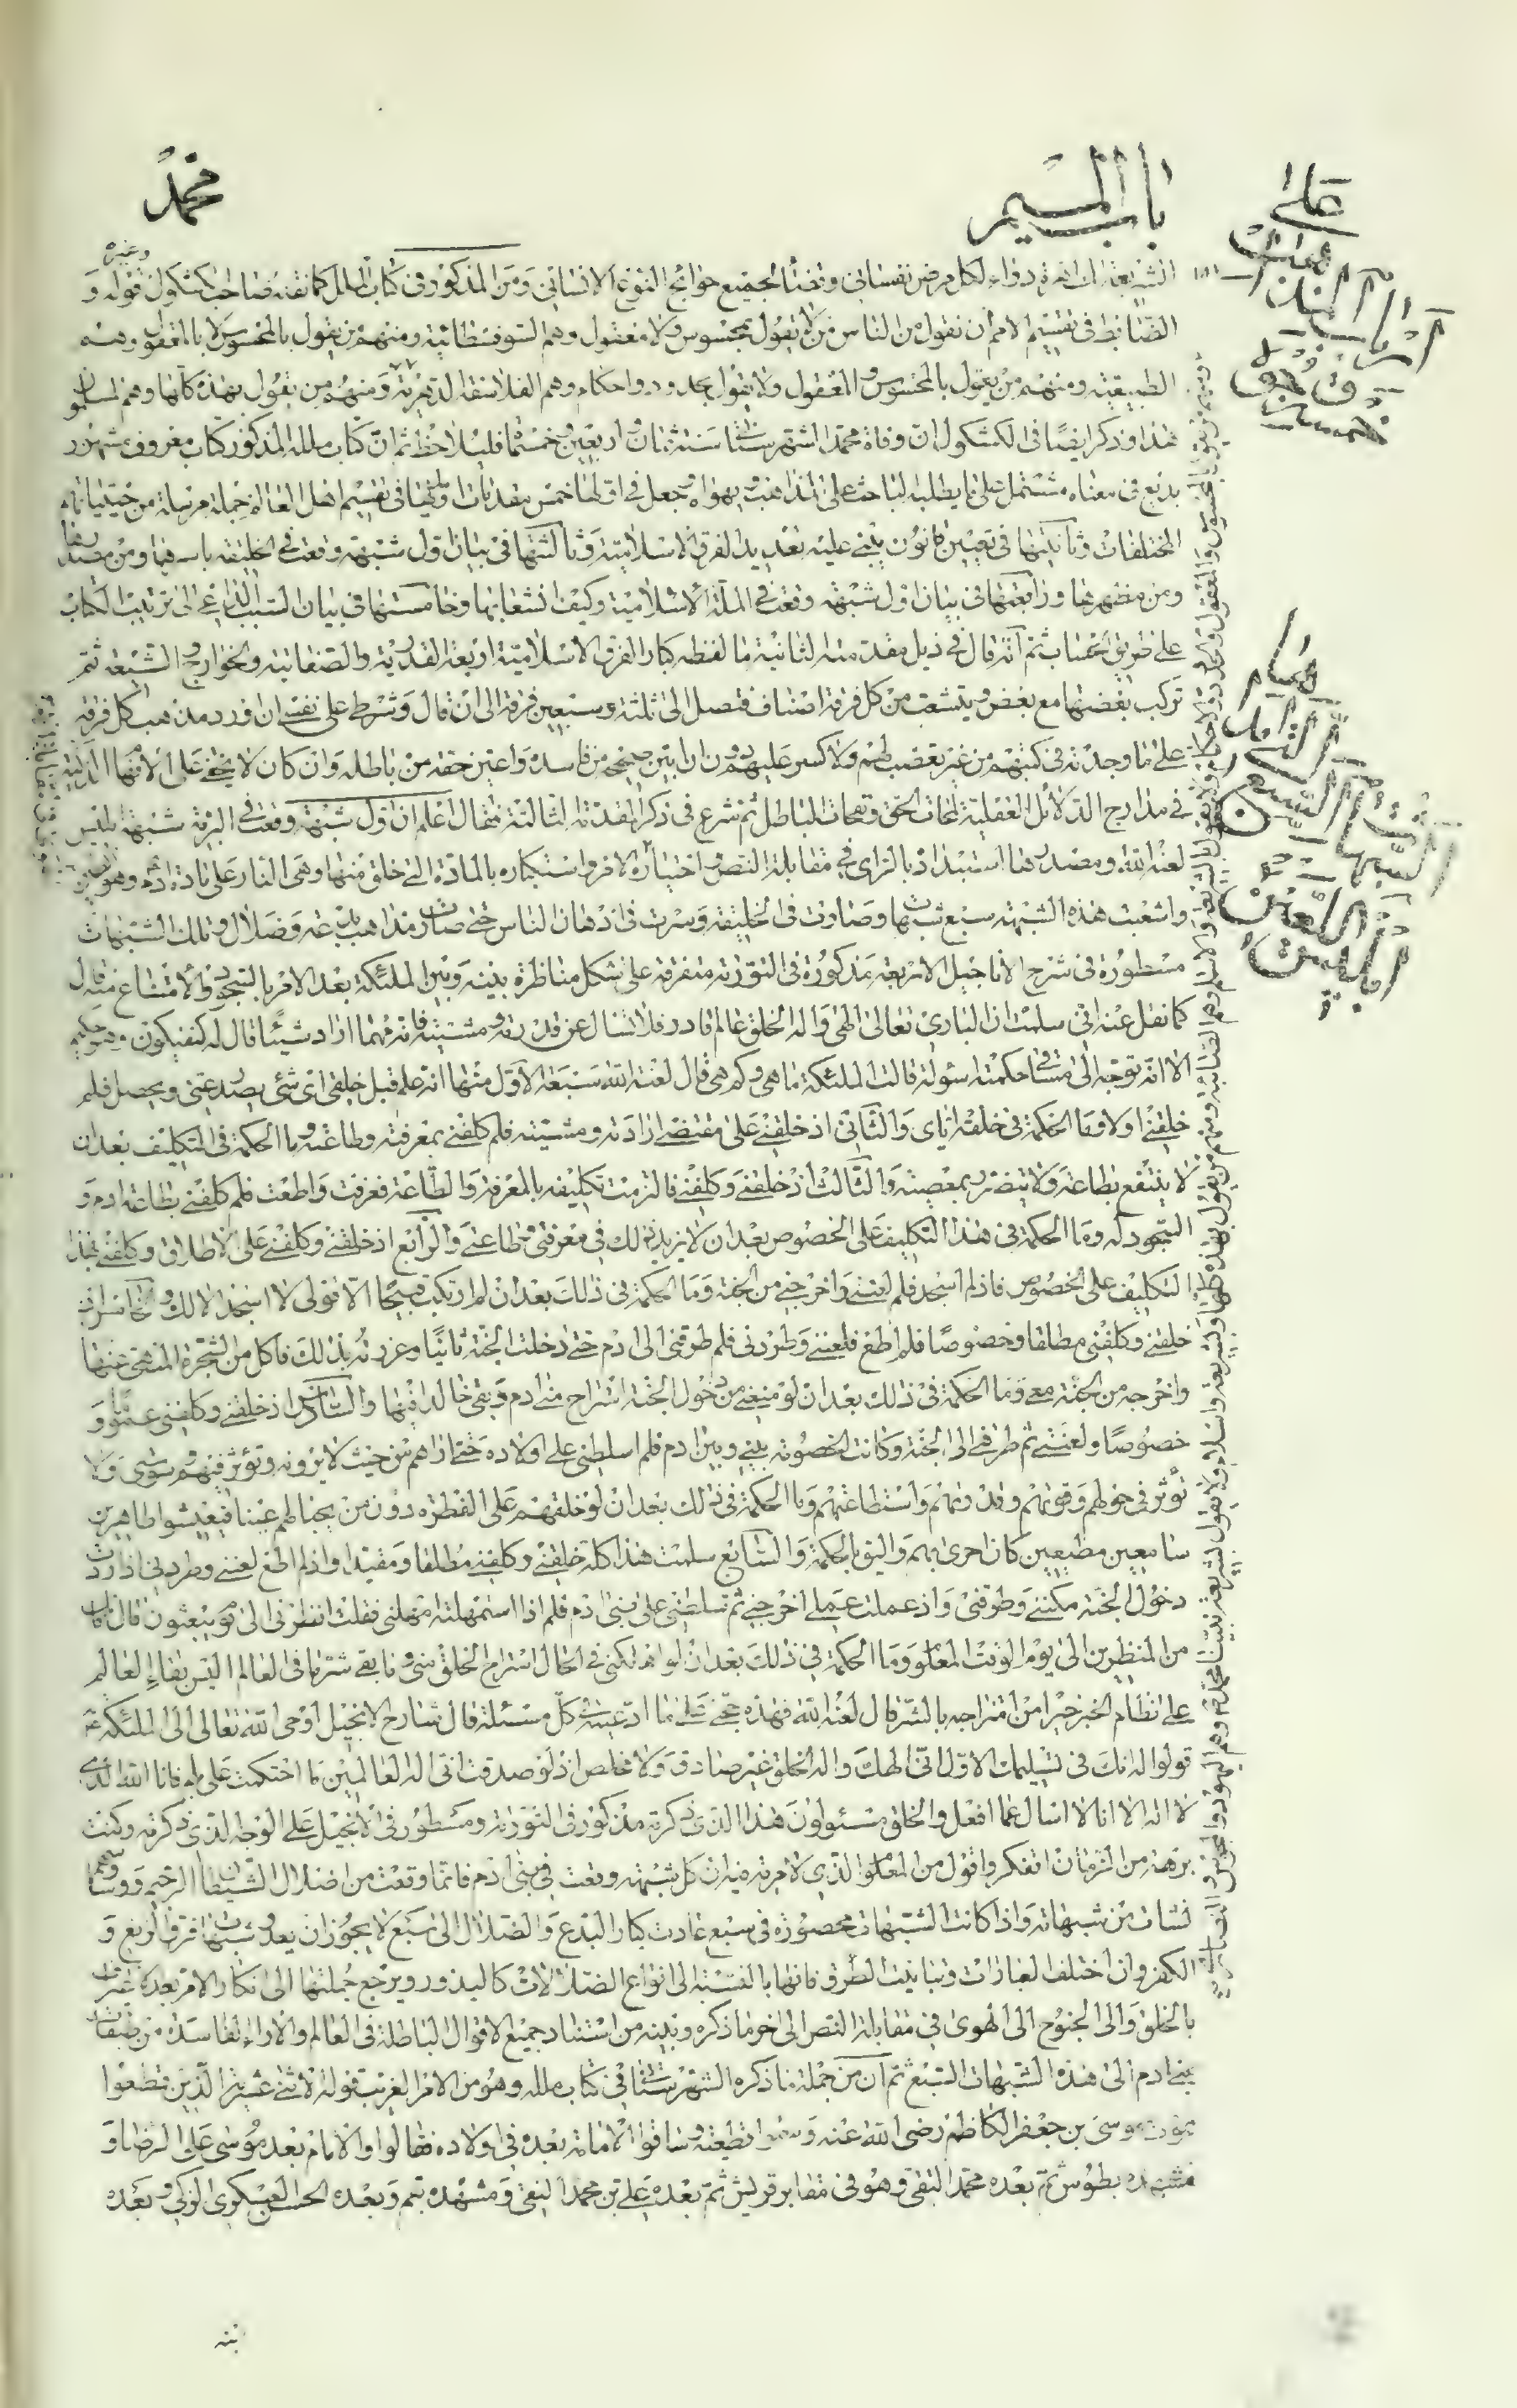 باب الميم
محمد
الشريعة دواء لكل مرض نفساني وقضاء لجميع حوائج النوع الانساني ومن المذكور في كتاب الملل كما نقله صاحب الكشكول قوله و
وغيره
الضابط في تقسيم الامم أن نقول من الناس من لا يقول بمحسوس ولا معقول وهم السوفسطائية ومنهم من يقول بالمحسوس لا بالمعقول وهم
الطبيعية ومنهم من يقول بالمحسوس والمعقول ولا يقول بحدود واحكام وهم الفلاسفة الدهرية ومنهم من يقول بهذه كلها وهم المسلمون
هذا وذكر ايضا في الكشكول ان وفاة محمد الشهرستاني سنة ثمان واربعين وخمسمائة فليلاحظ ثم ان كتاب ملله المذكور كتاب معروف مشهور
بديع في معناه مشتمل على ما يطلبه الباحث على المذاهب ويهواه وجعل في اولها خمس مقدمات اوليها في تقسيم اهل العالم جملة مرسلة من
المختلفات وثانيتها في تعيين قانون يبتني عليه تعديد الفرق الاسلامية وثالثتها في بيان اول شبهة وقعت في الخليقة باسرها ومن مصدرها
ومن مظهرها ورابعتها في بيان اول شبهة وقعت في الملة الاسلامية وكيف انشعابها وخامستها في بيان السبب الداعي الى ترتيب الكتاب
على طريق الحساب ثم انه قال في ذيل مقدمته الثانية ما لفظه كبار الفرق الاسلامية اربعة القدرية والصفاتية والخوارج والشيعة ثم
تركب بعضها مع بعض ويتشعب من كل فرقة اصناف فتصل الى ثلثة وسبعين فرقة الى ان قال وشرطي على نفسي ان اورد مذهب كل فرقة
على ما وجدته في كتبهم من غير تعصب لهم ولا كسر عليهم دون ان ابين صحيحه من فاسده واعين حقه من باطله وان كان لا يخفى على الافهام الذكية
في مدارج الدلائل العقلية لمحات الحق ونفحات الباطل ثم شرع في ذكر المقدمة الثالثة فقال اعلم ان اول شبهة وقعت في البرية شبهة ابليس
لعنه الله ومصدرها استبداده بالراي في مقابلة النص واختياره الهوى في معارضة الامر واستكباره بالمادة التي خلق منها وهي النار على مادة ادم وهو الطين
وانشعبت هذه الشبهة سبع شبهات وصارت في الخليقة وسرت في اذهان الناس حتى صارت مذاهب بدعة وضلال وتلك الشبهات
مسطورة في شرح الاناجيل الاربعة مذكورة في التورية متفرقة على شكل مناظرة بينه وبين الملئكة بعد الامر بالسجود والامتناع منه قال
كما نقل عنه اني سلمت ان الباري تعالى الهي واله الخلق عالم قادر فلا يسال عن قدرته ومشيته فانه مهما اراد شيئا قال له كن فيكون وهو حكيم
الا انه يتوجه الى مساق حكمته اسولة قالت الملئكة ما هي وكم هي قال لعنه الله سبعة الاول منها انه علم قبل خلقي اي شئ يصدر عني ويحصل فلم
خلقني اولا وما الحكمة في خلقه اياي والثاني اذ خلقني على مقتضى ارادته ومشيته فلم كلفني بمعرفته وطاعته وما الحكمة في التكليف بعد ان
لا ينتفع بطاعة ولا يتضرر بمعصية والثالث اذ خلقني وكلفني فالتزمت تكليفه بالمعرفة والطاعة فعرفت واطعت فلم كلفني بطاعة ادم و
السجود له وما الحكمة في هذا التكليف على الخصوص بعد ان لا يزيد ذلك في معرفتي وطاعتي والرابع اذ خلقني وكلفني على الاطلاق وكلفني بهذا
التكليف على الخصوص فاذ لم اسجد فلم لعنني واخرجني من الجنة وما الحكمة في ذلك بعد ان لم ارتكب قبيحا الا قولي لا اسجد الا لك والخامس اذ
خلقني وكلفني مطلقا وخصوصا فلم اطع فلعنني وطردني فلم طرقني الى ادم حتى دخلت الجنة ثانيا وغررته بذلك فاكل من الشجرة المنهي عنها
واخرجه من الجنة معي وما الحكمة في ذلك بعد ان لو منعني من دخول الجنة استراح مني ادم وبقي خالدا فيها والسادس اذ خلقني وكلفني عموما و
خصوصا ولعنني ثم طرقني الى الجنة وكانت الخصومة بيني وبين ادم فلم سلطني على اولاده حتى اراهم من حيث لا يرونه وتؤثر فيهم وسوستي ولا
تؤثر في حولهم وقوتهم وقدرتهم واستطاعتهم وما الحكمة في ذلك بعد ان لو خلقهم على الفطرة دون من يجتالهم عنها فيعيشوا طاهرين
سامعين مطيعين كان احرى بهم واليق بالحكمة والسابع سلمت هذا كله خلقني وكلفني مطلقا ومقيدا واذ لم اطع لعنني وطردني واذ اردت
دخول الجنة مكنني وطرقني واذ عملت عملي اخرجني ثم سلطني على بني ادم فلم اذا استمهلته امهلني فقلت انظرني الى يوم يبعثون قال انك
من المنظرين الى يوم الوقت المعلوم وما الحكمة في ذلك بعد ان لو اهلكني في الحال استراح الخلق مني وما بقي شر ما في العالم اليس بقاء العالم
على نظام الخير خيرا من امتزاجه بالشر قال لعنه الله فهذه حجتي على ما ادعيته في كل مسئلة قال شارح الانجيل اوحى الله تعالى الى الملئكة
قولوا له انك في تسليمك الاول اني الهك واله الخلق غير صادق ولا مخلص اذ لو صدقت اني اله العالمين ما احتكمت علي بلم فانا الله الذي
لا اله الا انا لا اسال عما افعل والخلق مسئولون هذا الذي ذكرته مذكور في التورية ومسطور في الانجيل على الوجه الذي ذكرته وكنت
برهة من الزمان اتفكر واقول من المعلوم الذي لا مرية فيه ان كل شبهة وقعت في بني ادم فانما وقعت من اضلال الشيطان الرجيم ووساوسه
نشات من شبهاته واذا كانت الشبهات محصورة في سبع عادت كبار البدع والضلال الى سبع لا يجوز ان يعدو شبهات فرق الزيغ و
الكفر وان اختلف العبارات وتباينت الطرق فانها بالنسبة الى انواع الضلالات كالبذور ويرجع جملتها الى انكار الامر بعد الاعتراف
بالخلق والى الجنوح الى الهوى في مقابلة النص الى اخر ما ذكره وبينه من استناد جميع الاقوال الباطلة في العالم والاراء الفاسدة من طبقات
بني ادم الى هذه الشبهات السبع ثم ان من جملة ما ذكره الشهرستاني في كتاب ملله وهو من الامر الغريب قوله الاثني عشرية الذين قطعوا
بموت موسى بن جعفر الكاظم رضي الله عنه وسموا قطعية وساقوا الامامة بعده في اولاده فقالوا والامام بعد موسى علي الرضا و
مشهده بطوس ثم بعده محمد التقي وهو في مقابر قريش ثم بعده علي بن محمد النقي ومشهده بقم وبعده الحسن العسكري الزكي وبعده